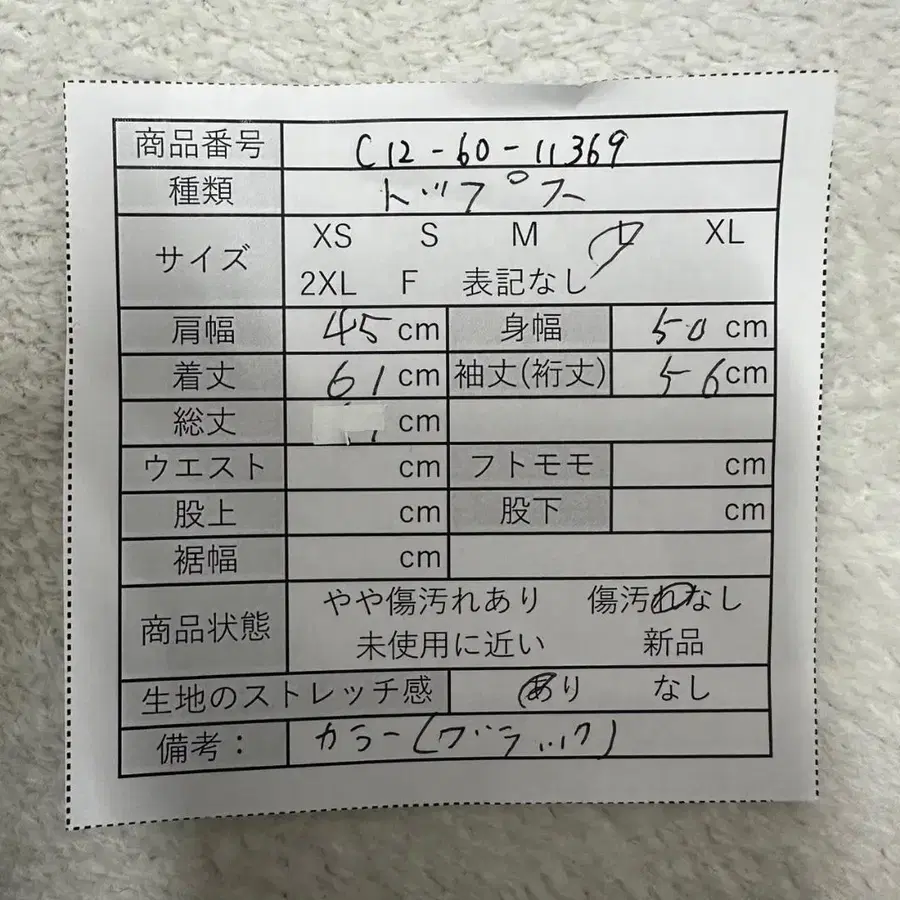 商品番号 C12-60-11369
種類 トップス
サイズ XS S M L XL
2XL F 表記なし
肩幅 45cm 身幅 50cm
着丈 61cm 袖丈(裄丈) 56cm
総丈 cm
ウエスト cm フトモモ cm
股上 cm 股下 cm
裾幅 cm
商品状態 やや傷汚れあり 傷汚れなし
未使用に近い 新品
生地のストレッチ感 あり なし
備考: カラー(ブラック)